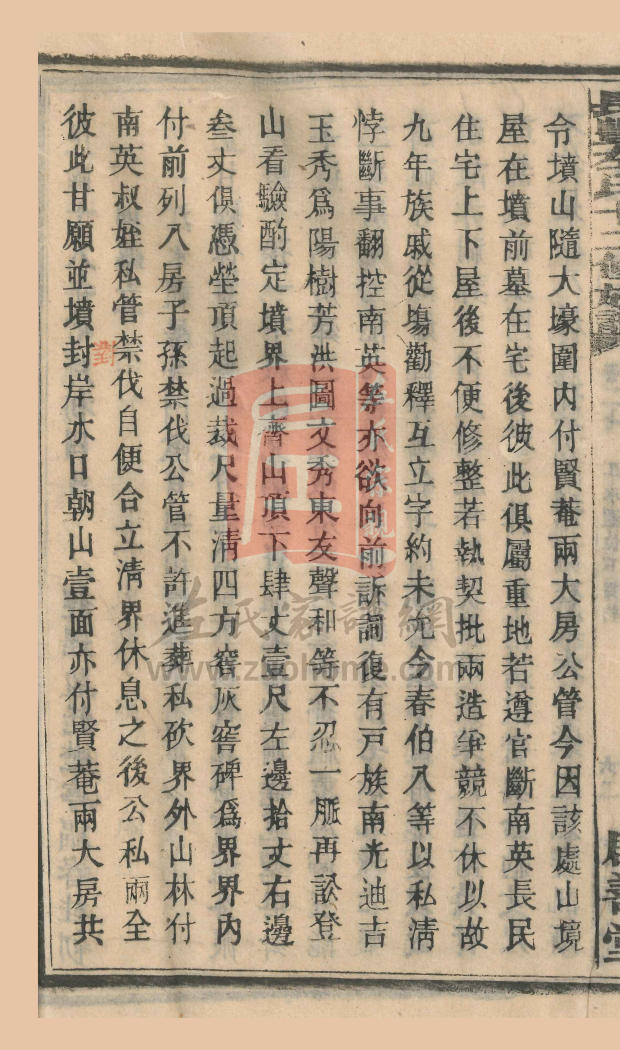 令墳山隨大壕圍内付賢菴兩大房公管今因該處山境
屋在墳前墓在宅後彼此俱屬重地若遵官斷南英長民
住宅上下屋後不便修整若執契批兩造爭競不休以故
九年族戚從塲勸釋互立字約未允今春伯八等以私清
悖斷事翻控南英等亦欲向前訴詞復有戸族南光迪吉
玉秀爲陽樹芳洪圖文秀東友聲和等不忍一脈再訟登
山看驗酌定墳界上齊山頂下肆丈壹尺左邊拾丈右邊
叁丈俱憑塋頂起過裁尺量清四方窖灰窖碑爲界界内
付前列八房子孫禁伐公管不許進葬私砍界外山林付
南英叔姪私管禁伐自便合立清界休息之後公私兩全
彼此甘願並墳封岸水口朝山壹面亦付賢菴兩大房共
對
左氏家譜網
www.zuohome.com